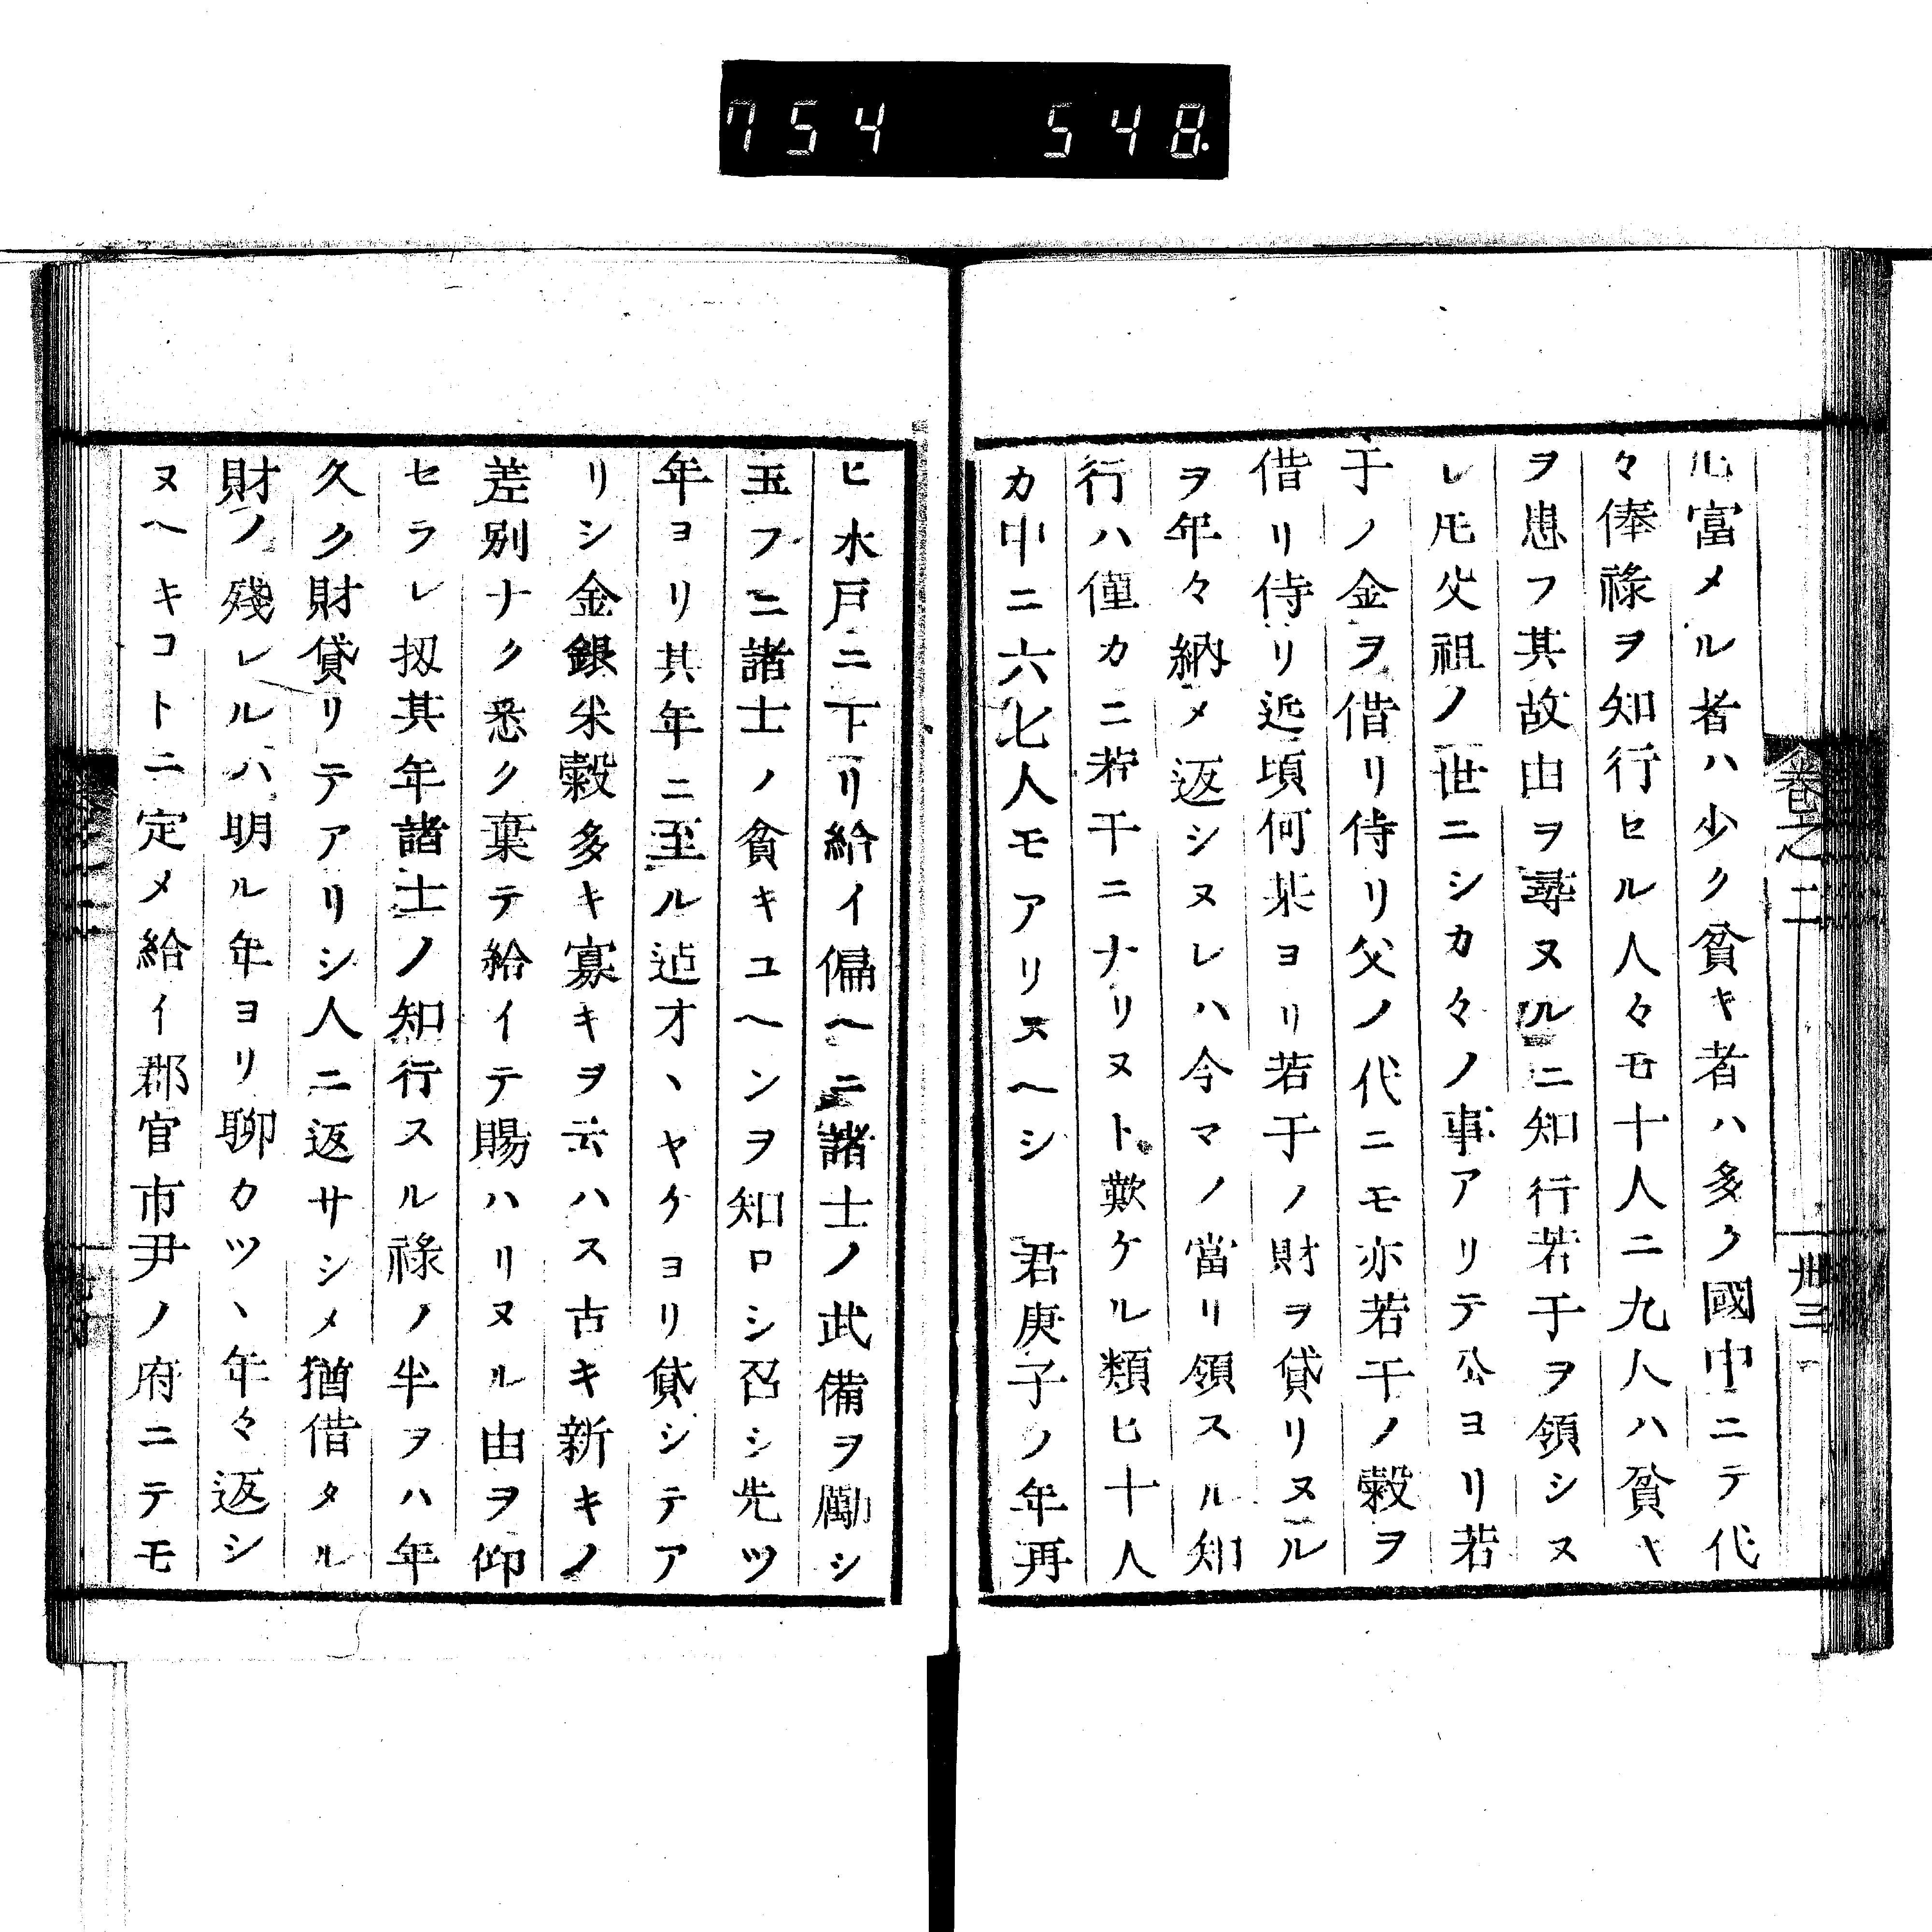 754 548.
心富メル者ハ少ク貧キ者ハ多ク國中ニテ代
々俸祿ヲ知行セル人々モ十人ニ九人ハ貧ヤ
ヲ患フ其故由ヲ尋ヌルニ知行若于ヲ領シヌ
レ𪜈父祖ノ世ニシカ々ノ事アリテ公ヨリ若
于ノ金ヲ借リ侍リ父ノ代ニモ亦若干ノ穀ヲ
借リ侍リ近頃何某ヨリ若于ノ財ヲ貸リヌル
ヲ年々納メ返シヌレハ今マノ當リ領スル知
行ハ僅カニ若干ニナリヌト歎ケル類ヒ十人
カ中ニ六七人モアリヌヘシ　君庚子ノ年再
卷之二
卅三
ヒ水戸ニ下リ給イ偏ヘニ諸士ノ武備ヲ勵シ
玉フニ諸士ノ貧キユヘンヲ知ロシ召シ先ツ
年ヨリ其年ニ至ル迠オヽヤケヨリ貸シテア
リシ金銀米穀多キ寡キヲ云ハス古キ新キノ
差別ナク悉ク棄テ給イテ賜ハリヌル由ヲ仰
セラレ扨其年諸士ノ知行スル祿ノ半ヲハ年
久ク財貸リテアリシ人ニ返サシメ猶借タル
財ノ殘レルハ明ル年ヨリ聊カツヽ年々返シ
ヌヘキコトニ定メ給イ郡官市尹ノ府ニテモ